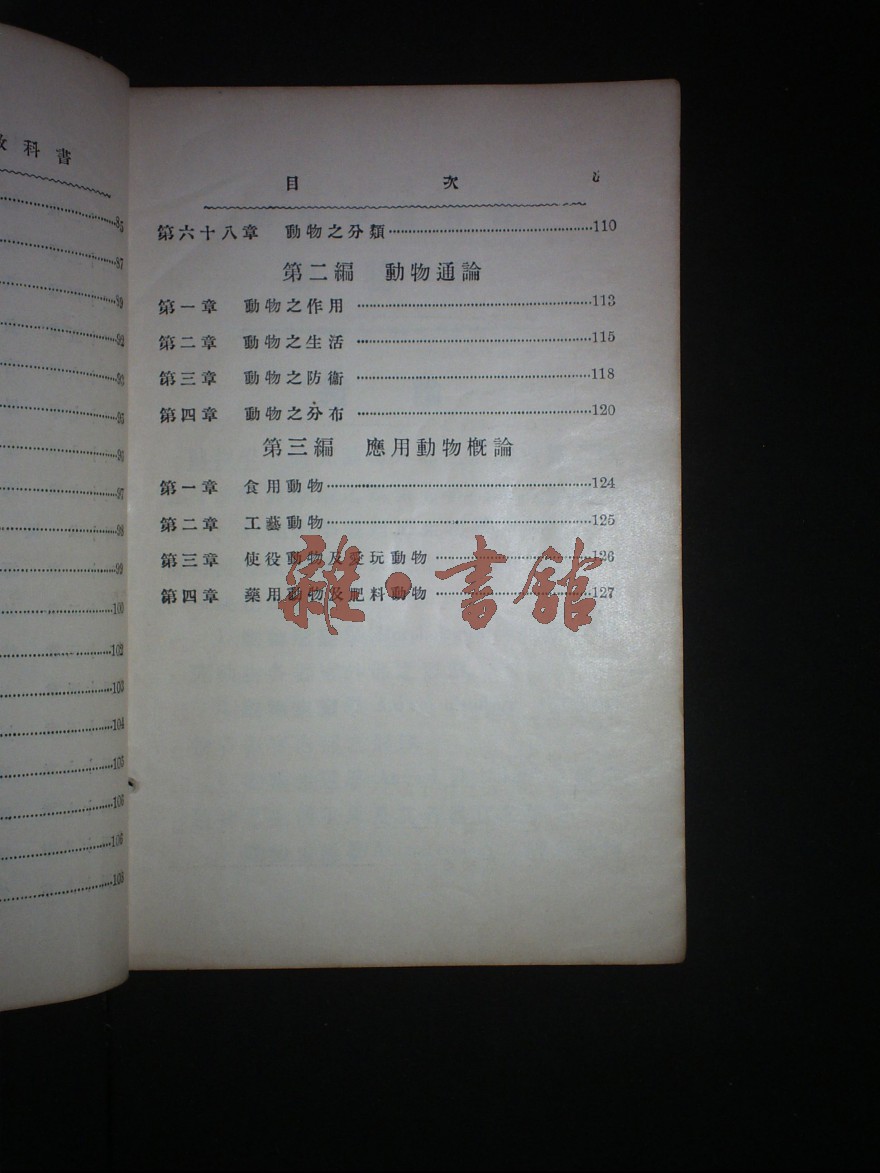 科書
85
87
89
92
93
95
96
97
98
99
100
102
103
104
105
106
106
108
目次
第六十八章 動物之分類 110
第二編 動物通論
第一章 動物之作用 113
第二章 動物之生活 115
第三章 動物之防衞 118
第四章 動物之分布 120
第三編 應用動物概論
第一章 食用動物 124
第二章 工藝動物 125
第三章 使役動物及愛玩動物 126
第四章 藥用動物及肥料動物 127
雜·書館